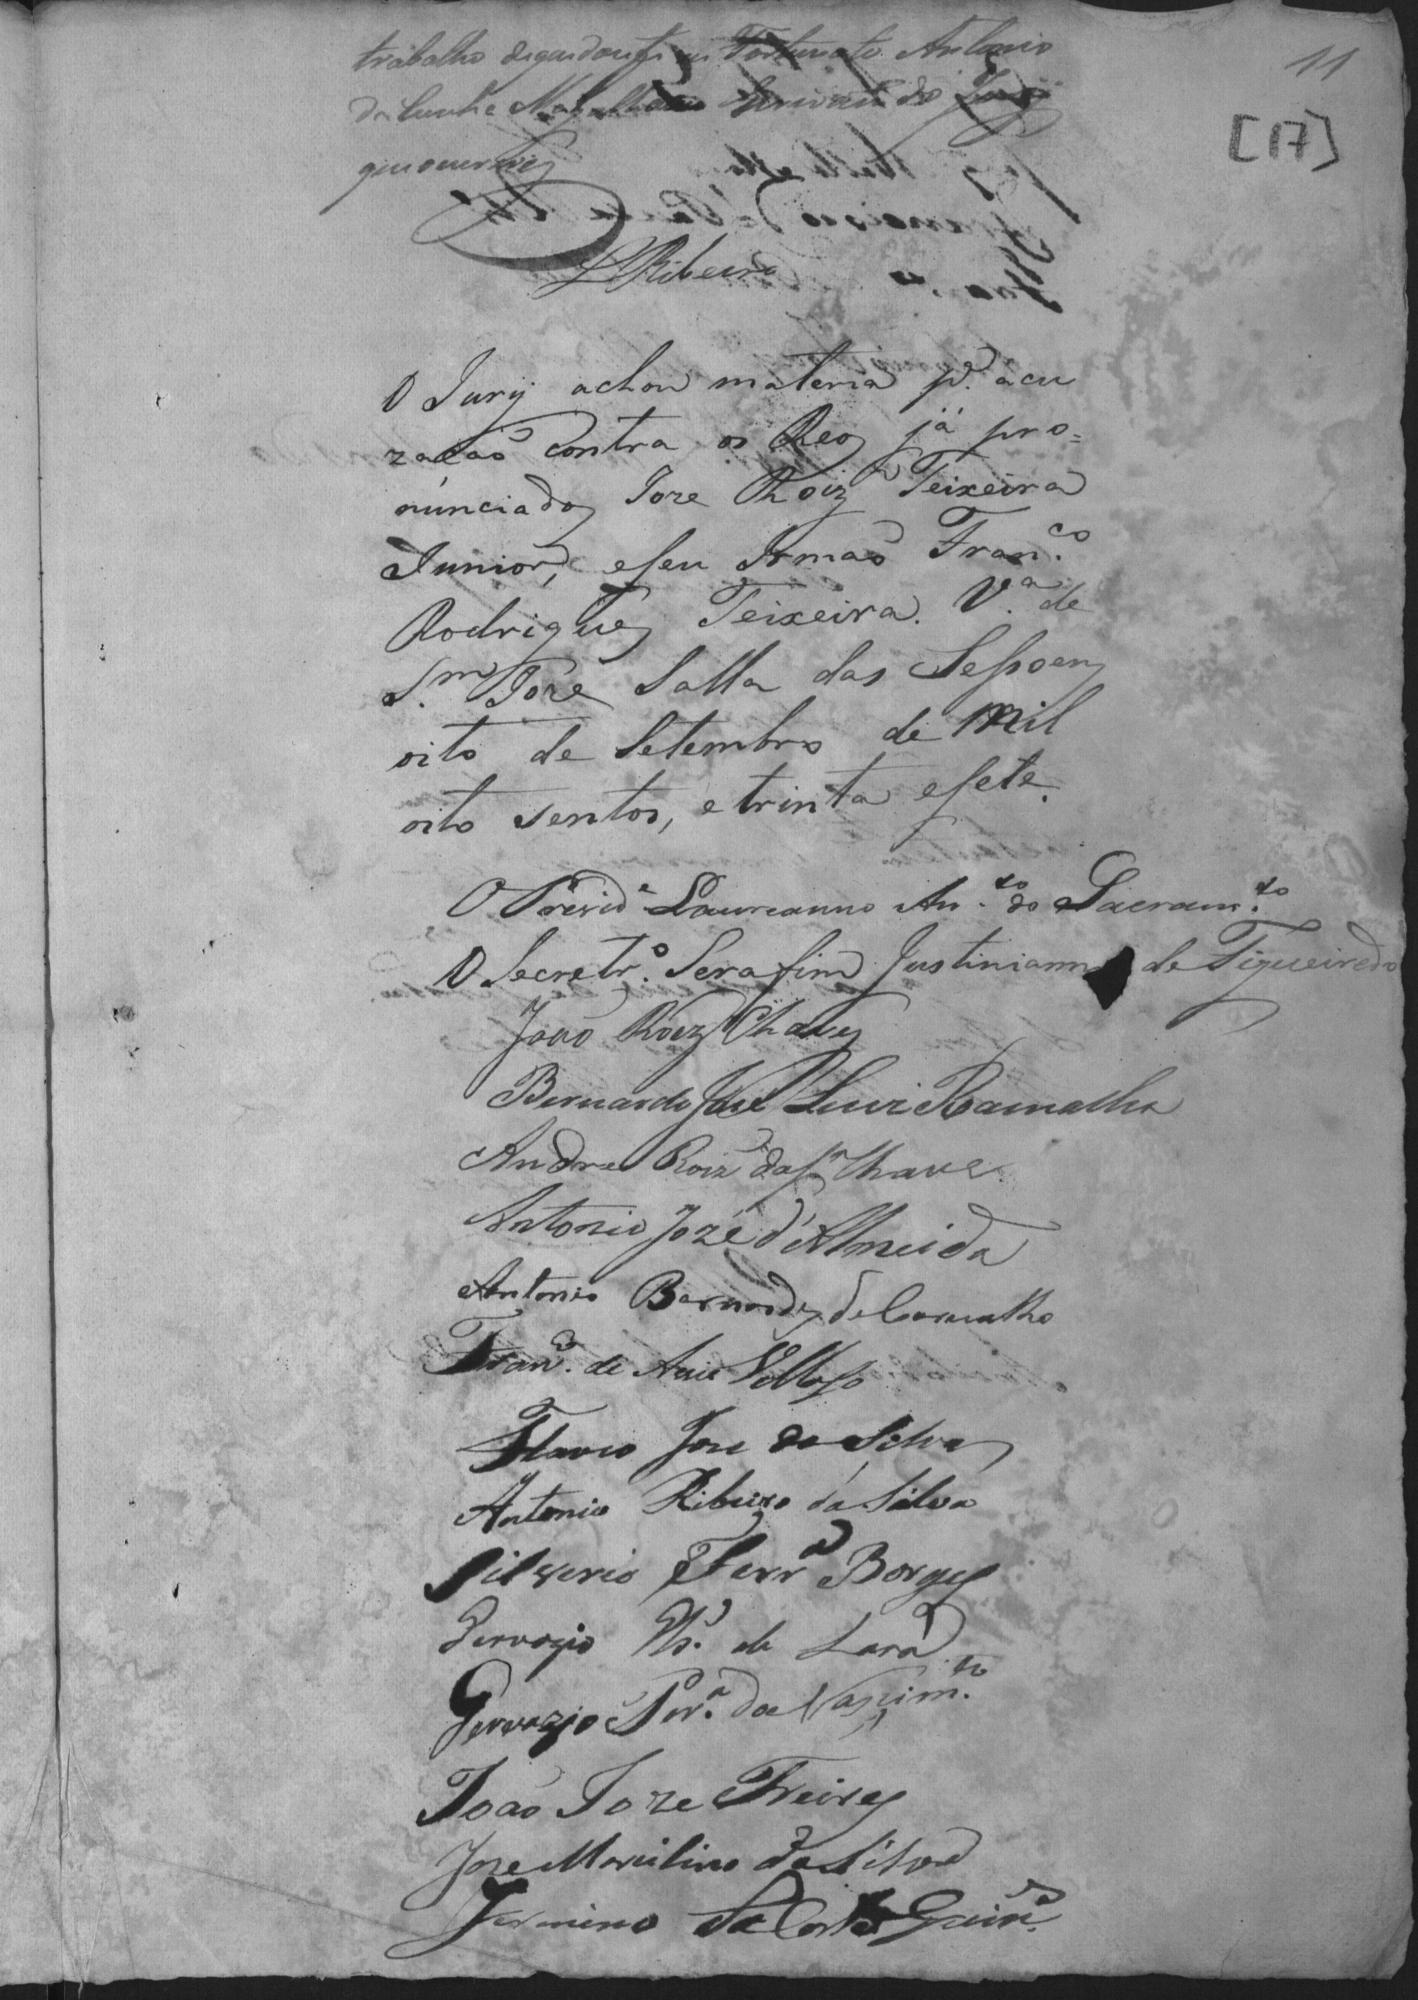 11
[17]
trabalho Fortunato Antonio
da Cunha Magalhaens Escrivaõ do Jury
que o escrevy
Ribeiro
O Jury achou materia p.ª acu
zacaõ contra os Reos já pro=
nunciados Joze Roiz Teixeira
Junior, eseu Irmaõ Fran.co
Rodrigues Teixeira. V.ª de
S. Joze Salla das Sessoens
oito de Setembro de Mil
oito sentos, e trinta esete.
O Prezid.e Laureanno An.to do Sacram.to
O Secretr.o Serafim Justinianno de Figueiredo
João Roiz Chaves
Bernardo Joze Luiz Ramalho
Andre Roiz da S.ª Chaves
Antonio Joze d'Almeida
Antonio Bernardes de Carvalho
Fran.co de Velloso
Flavio Joze da Silva
Antonio Ribeiro da Silva
Silverio Ferr.ª Borges
Gervazio de Lara
Gervazio Per.ª do Nascim.to
João Joze Freires
Joze Marcilino da Silva
Fermino da Costa Guim.es